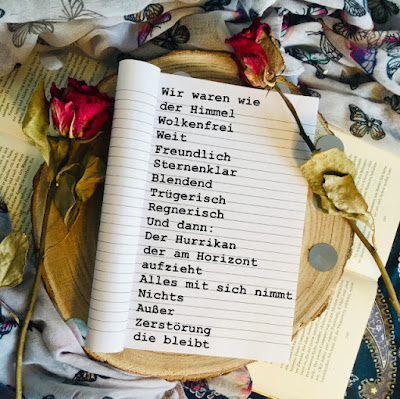 Wir waren wie
der Himmel
Wolkenfrei
Weit
Freundlich
Sternenklar
Blendend
Trügerisch
Regnerisch
Und dann:
Der Hurrikan
der am Horizont
aufzieht
Alles mit sich nimmt
Nichts
Außer
Zerstörung
die bleibt